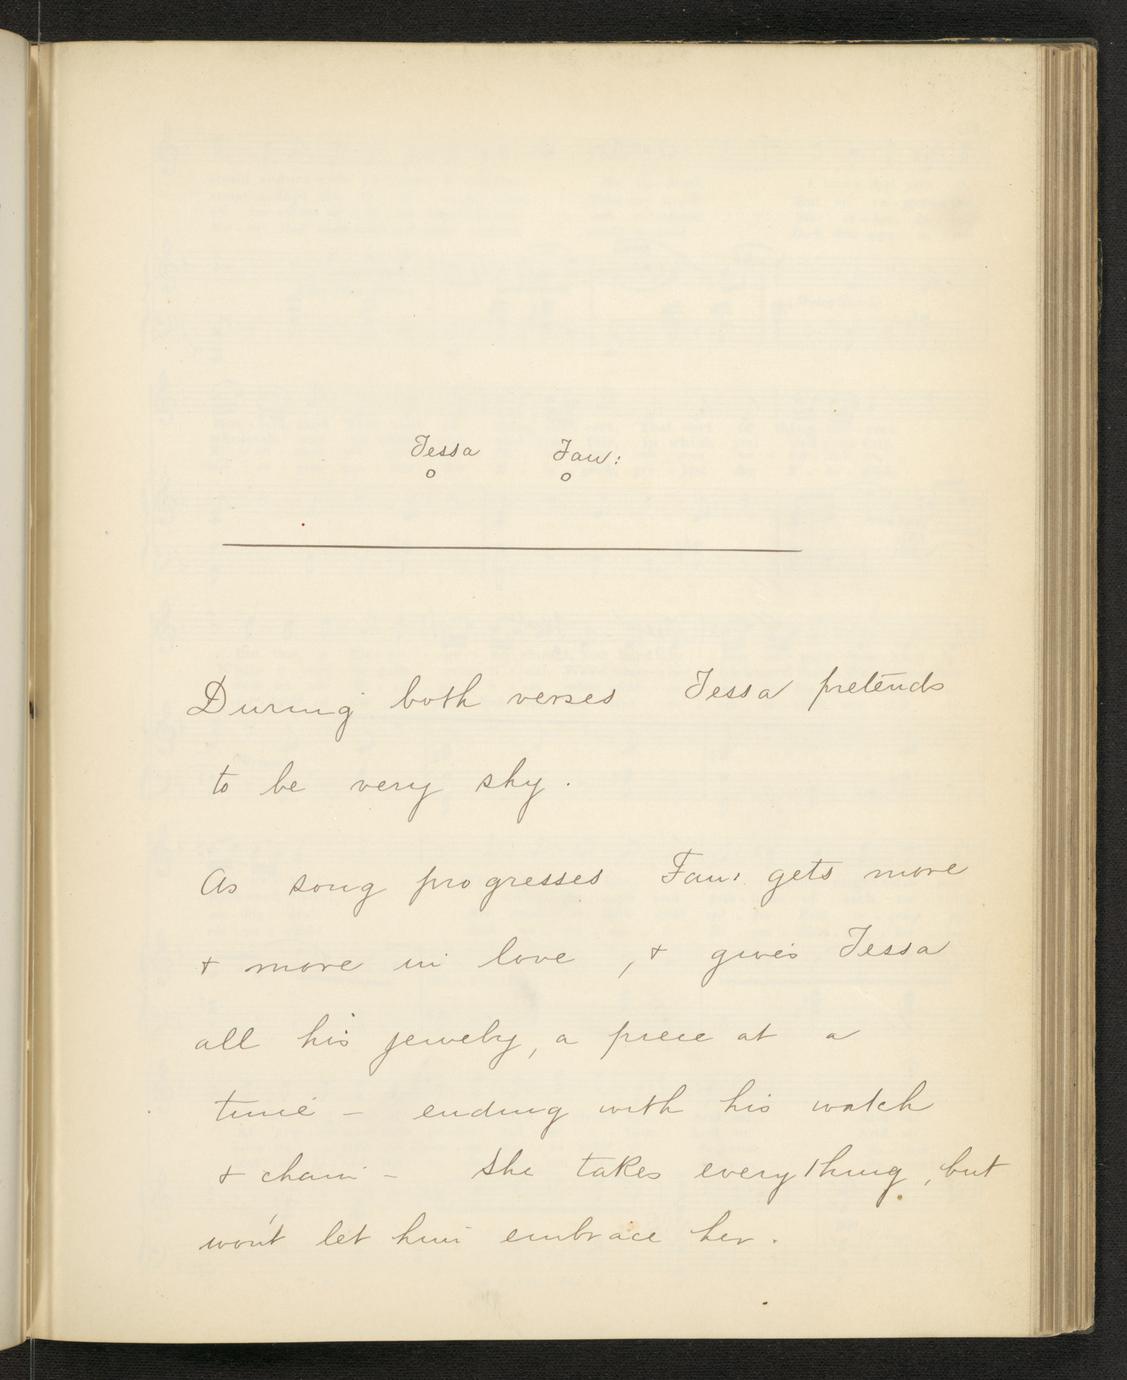 Tessa Fau:
During both verses Tessa pretends
to be very shy.
As song progresses Fau: gets more
& more in love, & gives Tessa
all his jewelry, a piece at a
time - ending with his watch
& chain - She takes everything, but
won't let him embrace her.